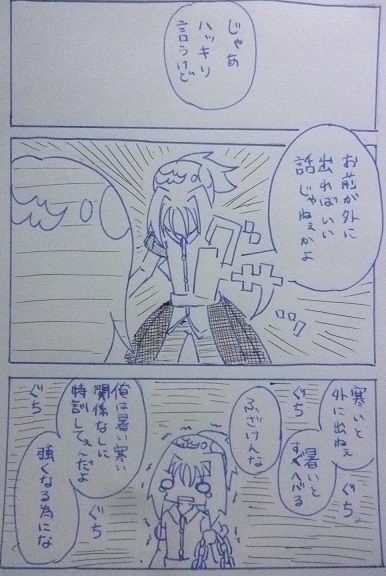 じゃあ
ハッキリ
言うけど
お前が外に
出ればいい
話じゃねぇかよ
グサッ
寒いと
外に出ねぇ
ぐち
暑いと
すぐへばる
ぐち
ふざけんな
俺は暑い寒い
関係なしに
特訓してぇんだよ
ぐち
ぐち
強くなる為にな